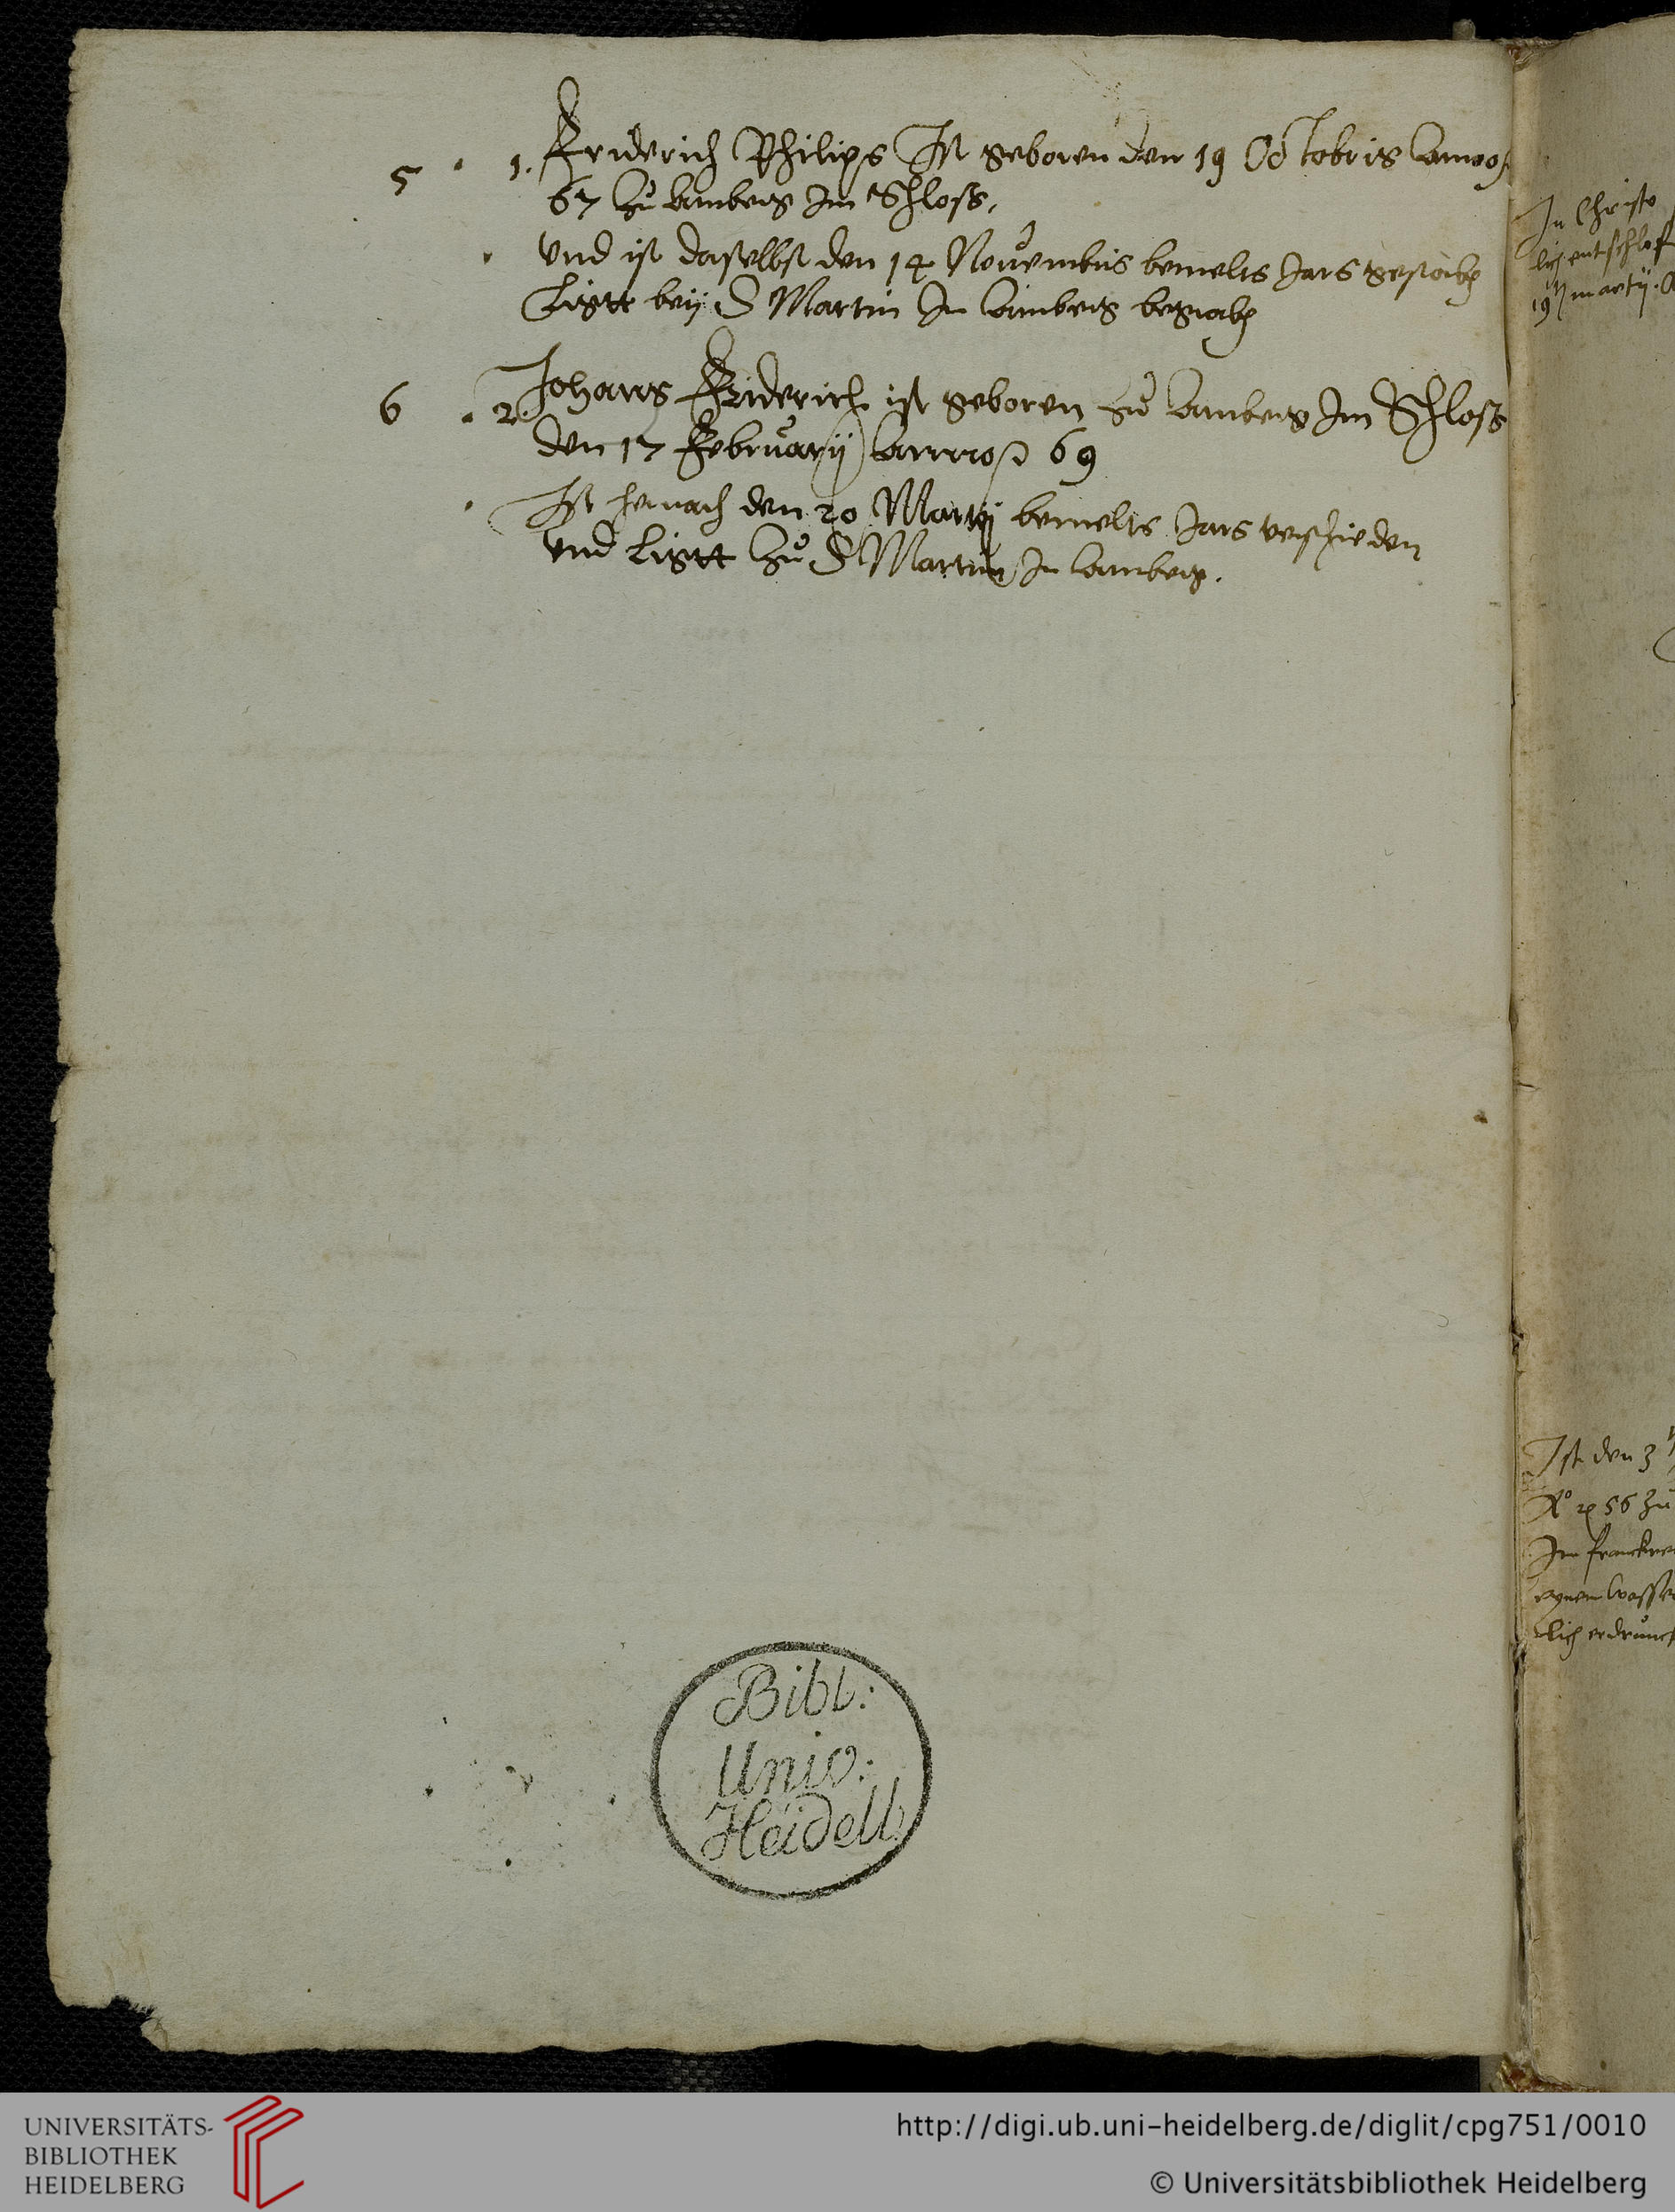 5 . 1. Friderich Philips Ist geboren den 19 Octobris Annoo
67 Zu Amberg Im Schloss,
. Vnd ist daselbst den 14 Nouembris bemelts Jars gestorben
Ligtt beÿ S Martin In Amberg begraben
6 . 2. Johans Friderich ist geboren Zu Amberg Im Schloss
den 17 Februarij Anno 69
. Ist hernach den 20 Martij bemelts Jars verschieden
vnd Ligtt Zu S Martin In Amberg.
In Christo
lich entschlof
19 martij. A
Ist den 3
A° 56 Zu
Im franckre
eynem wasser
lich erdrunck
Bibl:
Univ:
Heidelb
UNIVERSITÄTS-
BIBLIOTHEK
HEIDELBERG
http://digi.ub.uni-heidelberg.de/diglit/cpg751/0010
© Universitätsbibliothek Heidelberg